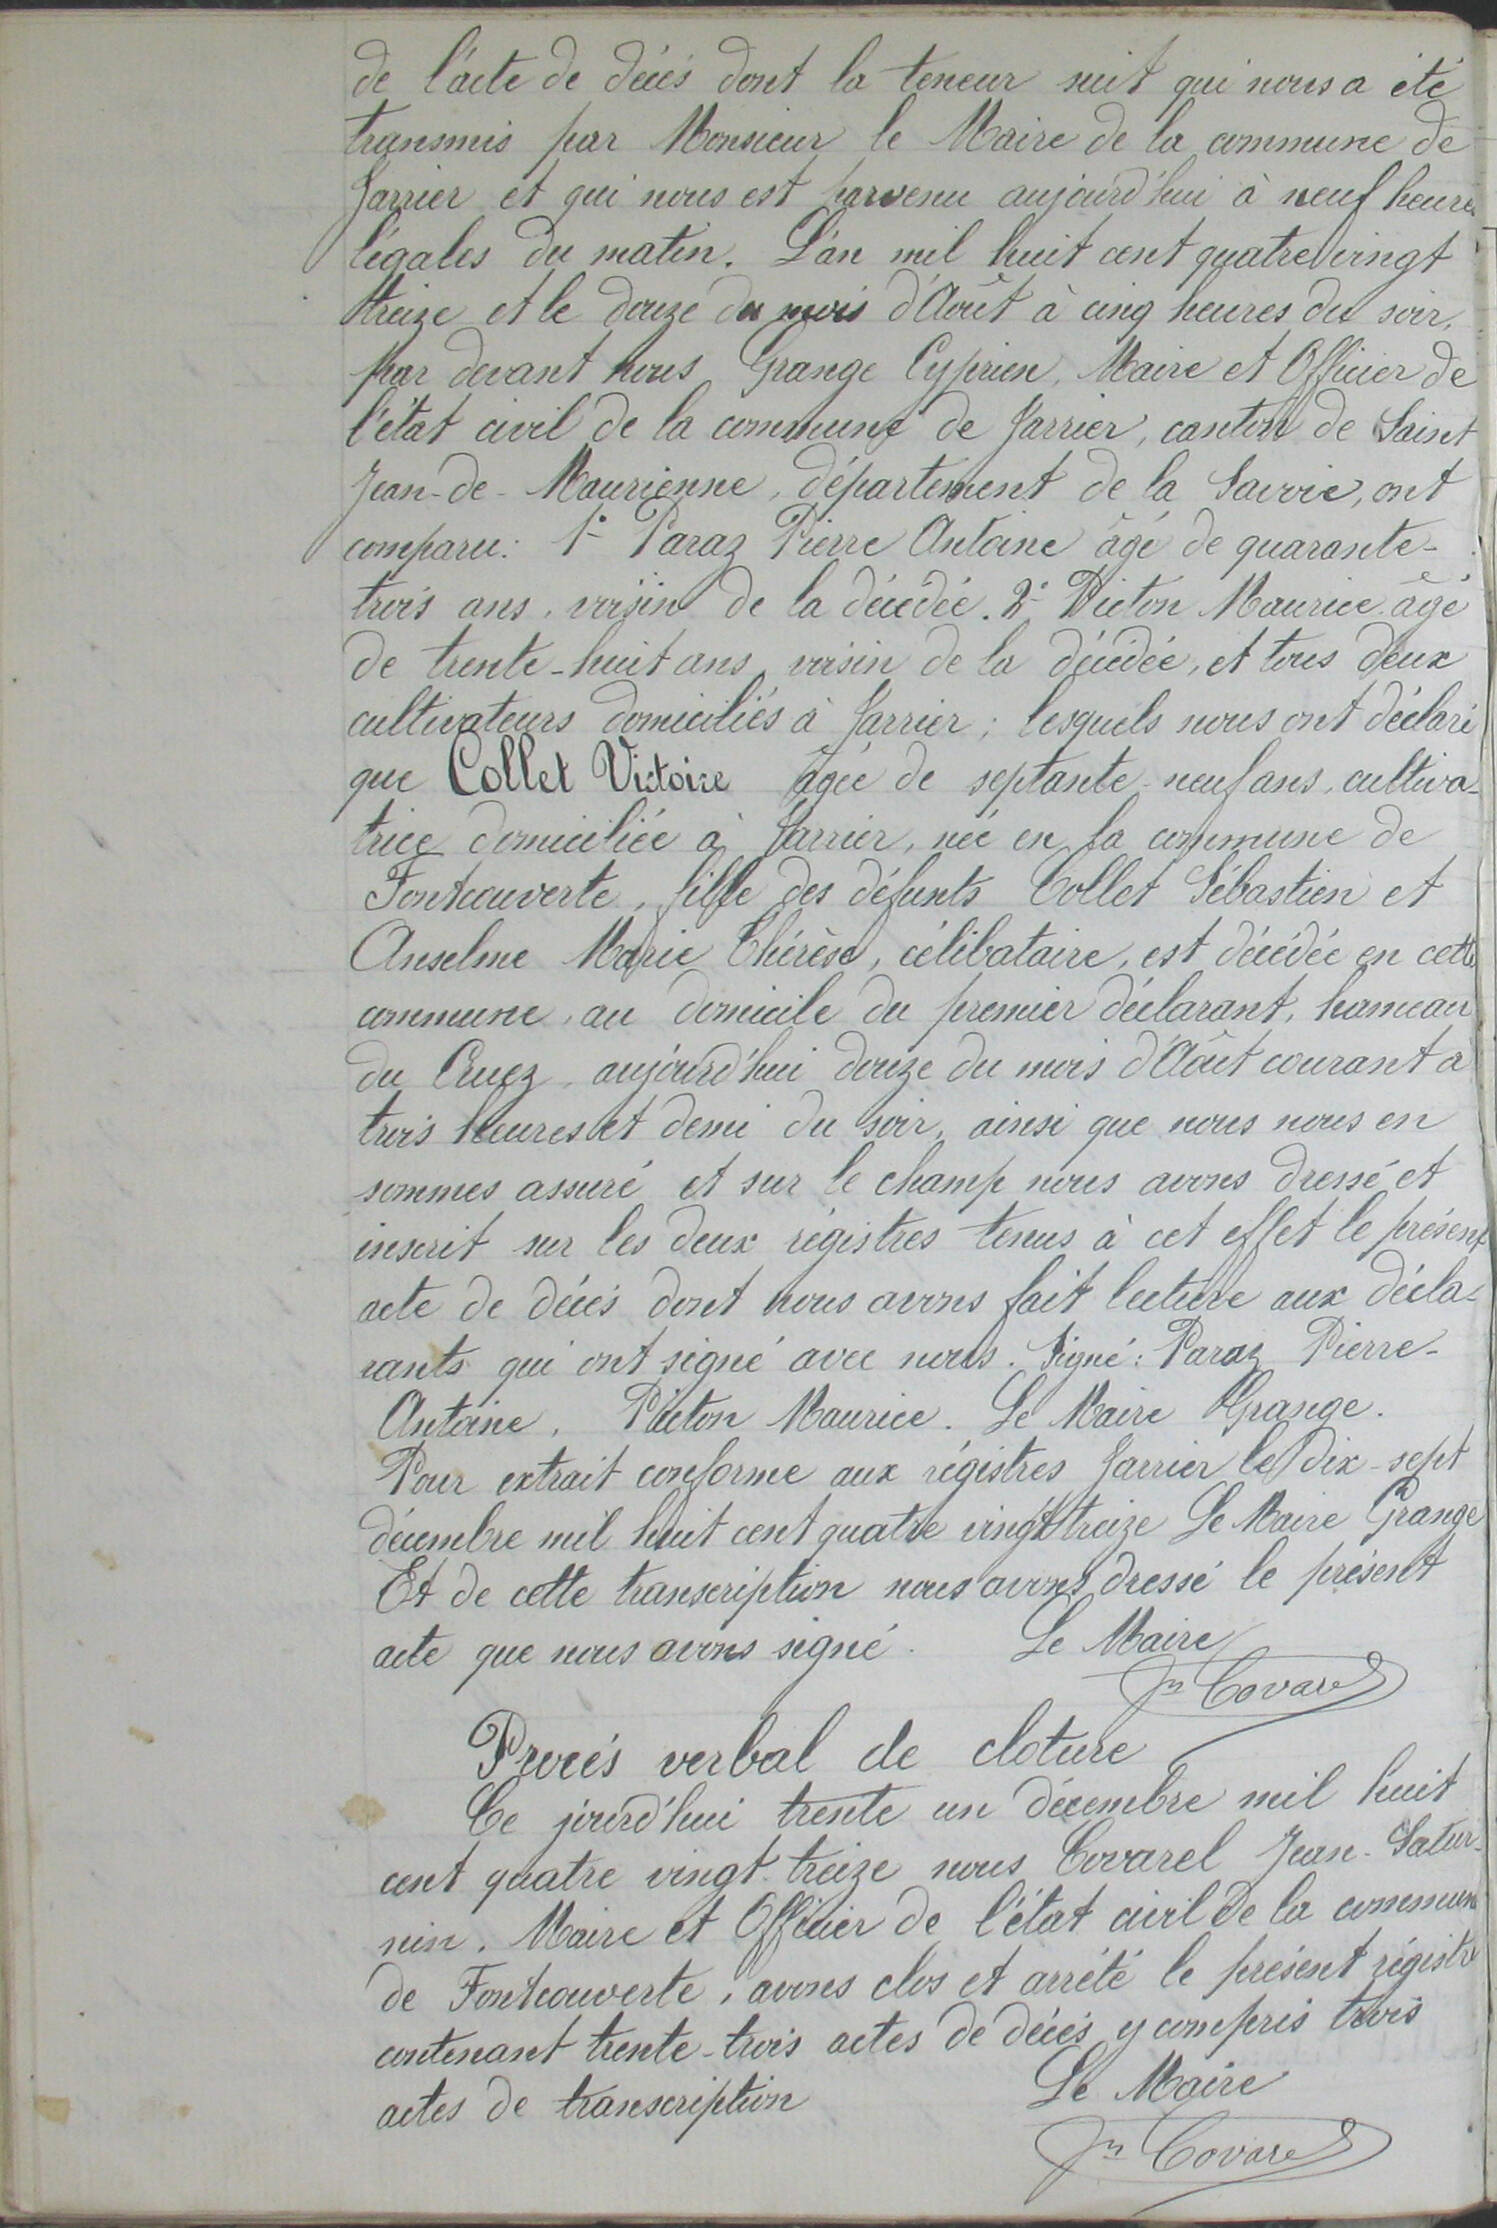 de l'acte de décès dont la teneur suit qui nous a été
transmis par Monsieur le Maire de la commune de
Jarrier et qui nous est parvenu aujourd'hui à neuf heures
légales du matin. L'an mil huit cent quatre vingt
treize et le douze du mois d'Août à cinq heures du soir,
par devant nous Grange Cyprien, Maire et Officier de
l'état civil de la commune de Jarrier, canton de Saint
Jean-de-Maurienne, département de la Savoie, ont
comparu: 1° Paraz Pierre Antoine âgé de quarante-
trois ans, voisin de la décédée. 2° Picton Maurice âgé
de trente-huit ans, voisin de la décédée, et tous deux
cultivateurs domiciliés à Jarrier; lesquels nous ont déclaré
que Collet Victoire âgée de septante-neuf ans, cultiva-
trice domiciliée à Jarrier, née en la commune de
Fontcouverte, fille des défunts Collet Sébastien et
Anselme Marie Thérèse, célibataire, est décédée en cette
commune, au domicile du premier déclarant, hameau
du Cruez, aujourd'hui douze du mois d'Août courant à
trois heures et demi du soir, ainsi que nous nous en
sommes assuré et sur le champ nous avons dressé et
inscrit sur les deux régistres tenus à cet effet le présent
acte de décès dont nous avons fait lecture aux décla-
rants qui ont signé avec nous. Signé: Paraz Pierre-
Antoine, Picton Maurice. Le Maire Grange.
Pour extrait conforme aux régistres Jarrier le dix-sept
décembre mil huit cent quatre vingt treize Le Maire Grange
Et de cette transcription nous avons dressé le présent
acte que nous avons signé. Le Maire
Jn Covarel
Procés verbal de cloture
Ce jourd'hui trente un décembre mil huit
cent quatre vingt-treize nous Covarel Jean-Satur-
nin, Maire et Officier de l'état civil de la commune
de Fontcouverte, avons clos et arrété le présent régistre
contenant trente-trois actes de décès y compris trois
actes de transcription Le Maire
Jn Covarel